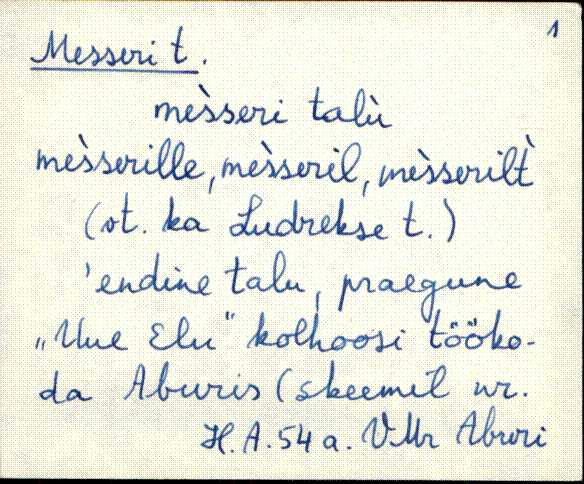 1
Messeri t.
mèsseri talù
mèsserille, mèsseril, mèsserilt̀
(vt. ka Ludrekse t.)
'endine talu, praegune
„Uue Elu" kolhoosi tööko-
da Aburis (skeemil nr.
H.A. 54 a. VMr Aburi